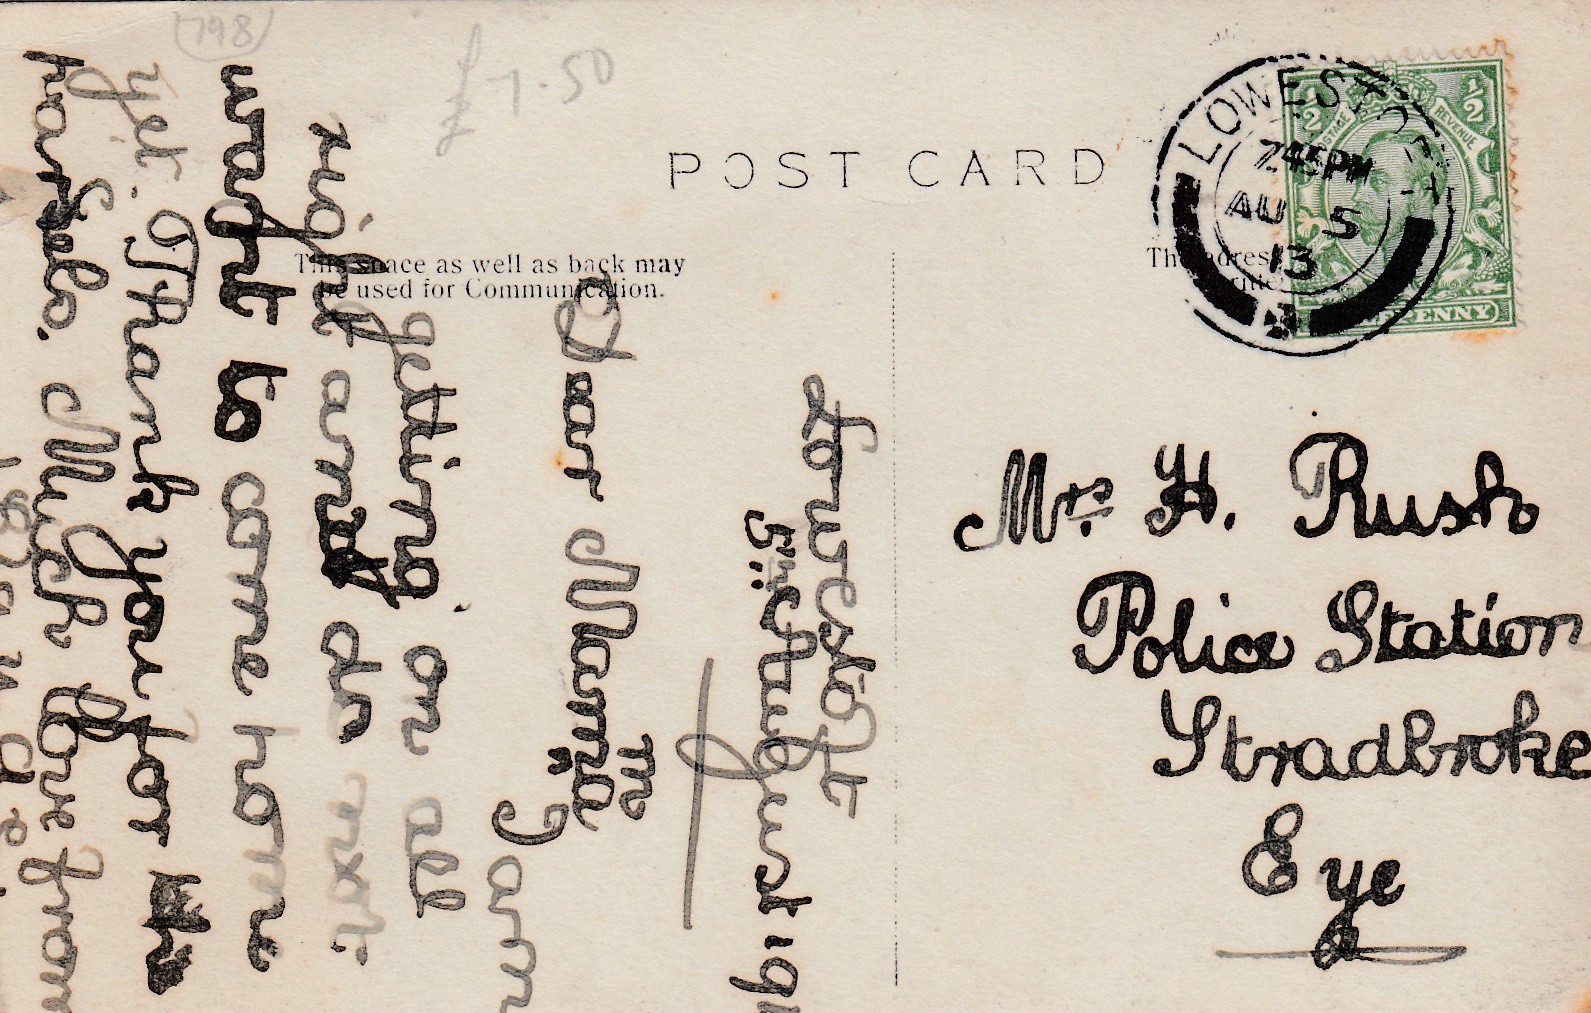 798
£1-50
POST CARD
This space as well as back may
be used for Communication.
LOWESTOFT
7.45PM
AU 5
13
½ ½
POSTAGE REVENUE
HALFPENNY
Mrs H. Rush
Police Station
Stradbroke
Eye
Lowestoft
5th August 191
Dear Mama
m
I am
getting on all
right and do not
want to come home
yet. Thank you for the
parsels. Much love from